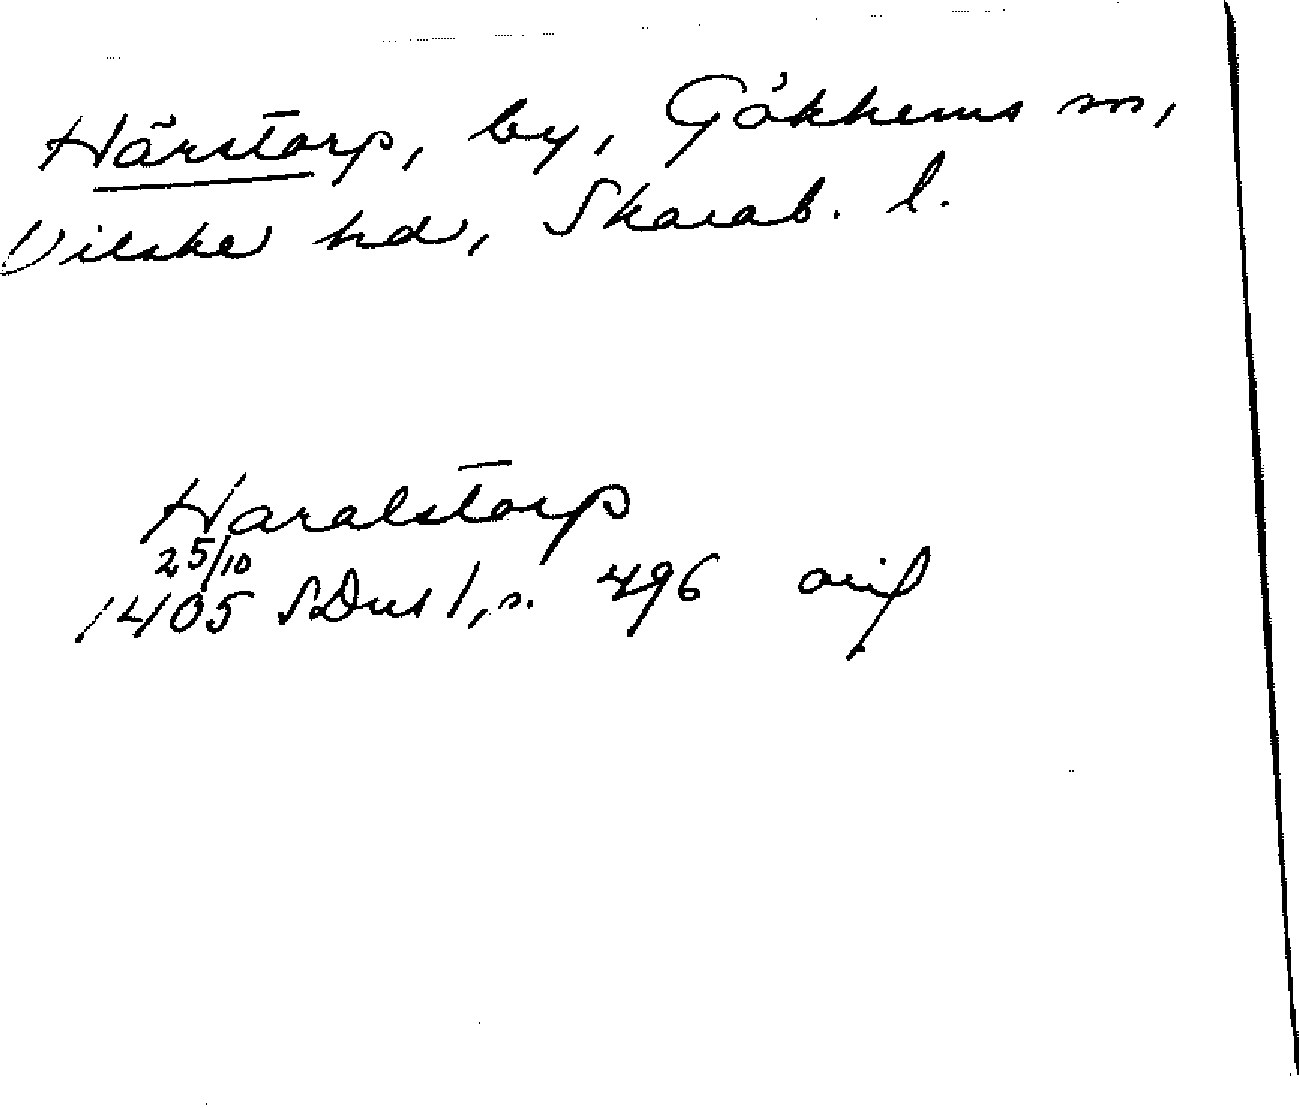 Härstorp, by, Gökhems sn,
Vilske hd, Skarab. l.
Haralstorp
25/10
1405 SDns 1, s. 496 orig